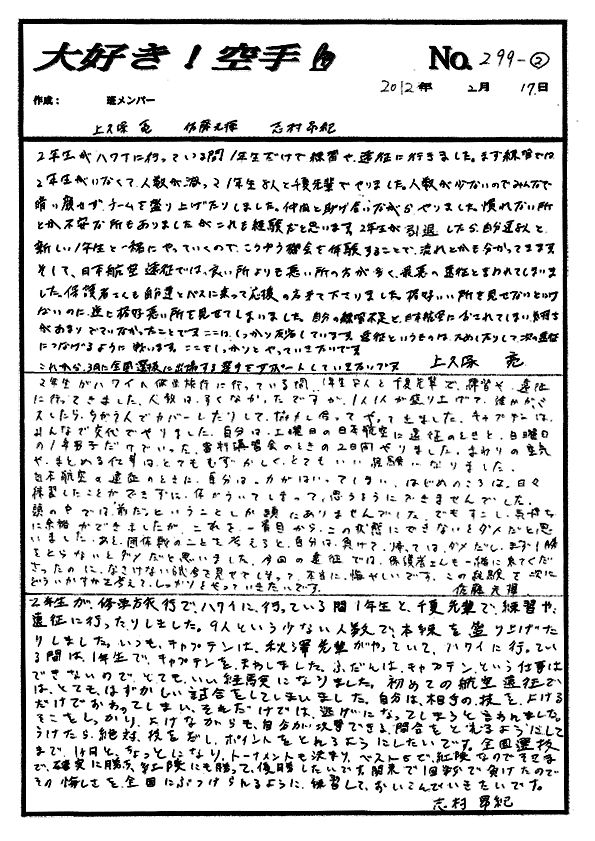 大好き!空手
No.299-②
2012年 2月 17日
作成: 班メンバー
上久保 亮 佐藤元揮 志村昂紀
2年生がハワイに行っている間1年生だけで練習や、遠征に行きました。まず練習では
2年生がいなくて人数が減って1年生8人と千夏先輩でやりました。人数が少ないのでみんなで
チームを盛り上げたりしました。仲間と助け合いながらやりました。慣れない所
とか不安な所もありましたがこれも経験だと思います。2年生が引退したら自分達と
新しい1年生と一緒にやっていくので、こうゆう機会を体験することで、流れとかも分かってきます。
そして、日本航空遠征では、良い所よりも悪い所の方が多く、最悪の遠征と言われてしまいま
した。保護者さんも自分達とバスに乗って応援の為来て下さりました。格好いい所を見せないといけ
ないのに、逆に格好悪い所を見せてしまいました。自分の練習不足と、日本航空に
があまりでていなかったことです。ここはしっかり反省しています。遠征というものは、ためしたりして次の遠征
につなげるように戦います。ここをしっかりとやっていきたいです
これから、3月に全国選抜に出場する選手をサポートしていきたいです 上久保 亮
2年生がハワイへ修学旅行に行っている間、1年生8人と千夏先輩で、練習や、遠征
に行ってきました。人数は、すくなかったですが、1人1人が盛り上げて、誰かがミ
スしたら、9人でカバーしたりして、なかよし合ってやってきました。キャプテンは、
みんなで交代でやりました。自分は、土曜日の日本航空に遠征のときと、日曜日
の1年男子だけでいった、審判講習会のときの2日間やりました。まわりの空気
や、まとめる仕事は、とてもむずかしく、とてもいい経験になりました。
日本航空の遠征のときに、自分は、力がはいってしまい、はじめのころは、日々
練習したことができずに、体がういてしまって、思うようにできませんでした。
頭の中では、前だということしか頭にありませんでした。でもすこし、気持ち
に余裕ができましたが、これを、一番目から、この状態にできないとダメだと思
いました。あと、団体戦のことを考えると、自分は、負けて、帰っては、ダメだし、まず1勝
をとらないとダメだと思いました。今回の遠征では、保護者さんも一緒に来てくだ
さったのに、なさけない試合を見せてしまって、本当に、悔やしいです。この経験で次に
どういかすか考えて、しっかりとやっていきたいです。 佐藤元揮
2年生が、修学旅行で、ハワイに、行っている間1年生と、千夏先輩で、練習や、
遠征に行ったりしました。9人という少ない人数で、本練を盛り上げた
りしました。いつも、キャプテンは、先輩がやっていて、ハワイに行ってい
る間は、1年生で、キャプテンを、まわしました。ふだんは、キャプテンという仕事は
できないので、とても、いい経験になりました。初めての航空遠征で
は、とても、はずかしい試合をしてしまいました。自分は、相手の技を、よける
だけでおわってしまい、それだけでは、逃げになってしまうと言われました。
そこをしっかり、よけながらも、自分が攻撃できる、間合をとれるようにして
うけたら、絶対、技をだし、ポイントをとれるようにしたいです。全国選抜
まで、1ヶ月と、ちょっとになり、トーナメントも決まり、ベスト8で、紅陵なのでそこま
で、確実に勝ち、紅陵にも勝って、優勝したいです。関東で1回戦で負けたので
その悔しさを、全国にぶつけられるように、練習して、おいこんでいきたいです。
志村 昂紀